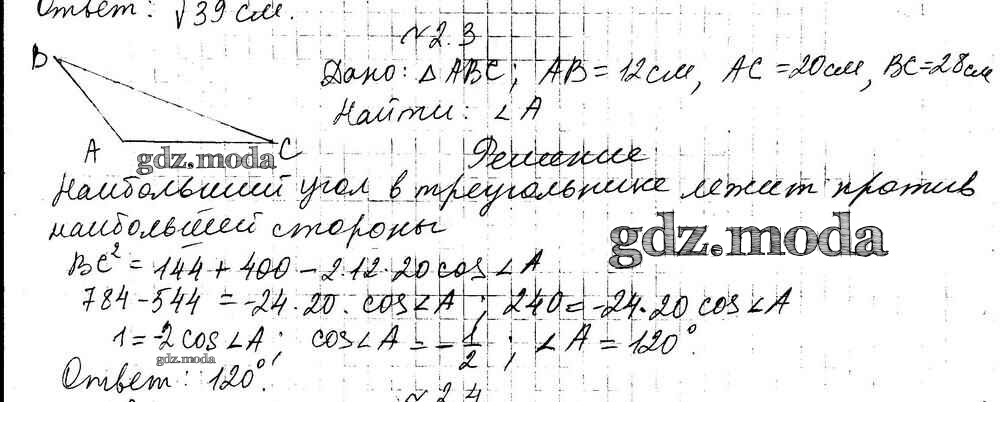 Ответ: √39 см.
№2.3
B
Дано: △ABC; AB=12см, AC=20см, BC=28см
Найти: ∠A
A
C
gdz.moda
Решение
Наибольший угол в треугольнике лежит против
наибольшей стороны
gdz.moda
BC² = 144 + 400 - 2·12·20 cos∠A
784-544 = -24·20·cos∠A; 240=-24·20 cos∠A
1=-2cos∠A; cos∠A = -1/2; ∠A = 120°.
gdz.moda
Ответ: 120°.
№2.4